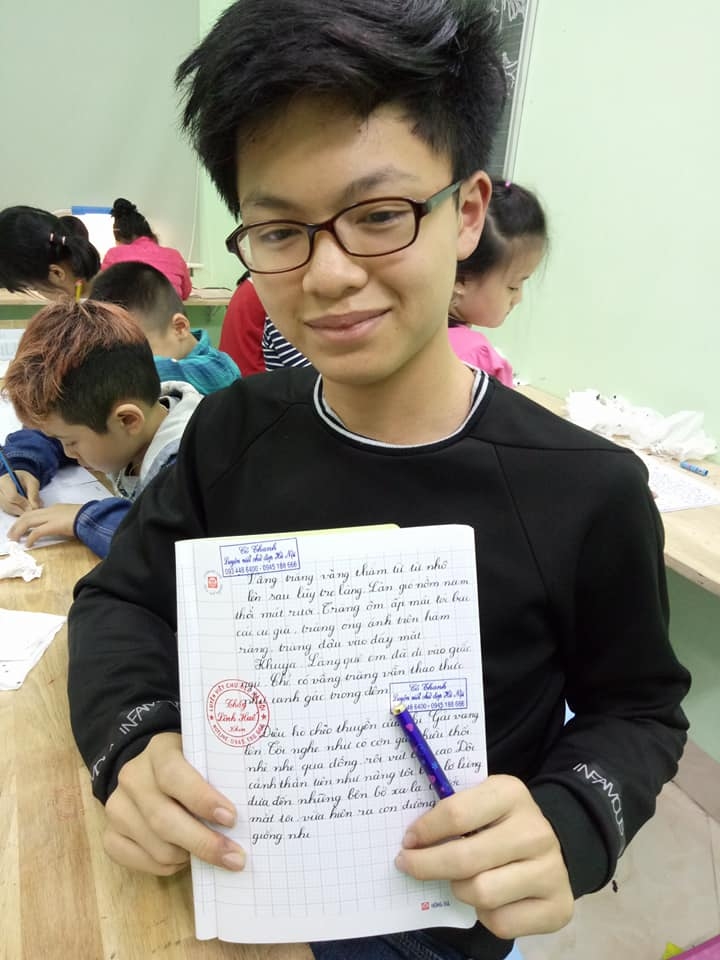 Cô Thanh
Luyện viết chữ đẹp Hà Nội
093 448 6400 - 0945 188 666
Vầng trăng vàng thẳm từ từ nhô
lên sau lũy tre làng. Làn gió nồm nam
thổi mát rượi. Trăng ôm ấp mái tóc bạc
các cụ già, trăng óng ánh trên hàm
răng, trăng đậu vào đáy mắt.
Khuya. Làng quê em đã đi vào giấc
ngủ. Chỉ có vầng trăng vẫn thao thức
canh gác trong đêm
Cô Thanh
Luyện viết chữ đẹp Hà Nội
093 448 6400 - 0945 188 666
LUYỆN VIẾT CHỮ ĐẸP
Thầy
Linh Huế
Khen
HOTLINE 0945 188 666
Điệu hò chèo thuyền vang
lên. Tôi nghe như có cơn gió chiều thổi
nhè nhẹ qua đồng, rồi vút cao. Đôi
cánh thần tiên như nâng tôi lơ lửng
đưa đến những bến bờ xa lạ
mắt tôi vừa hiện ra con đường
giống như
HỒNG HÀ
INFAMOUS
INFAMOUS